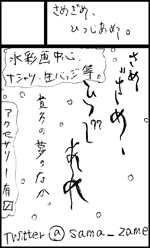 さめざめ、
ひつじあめ。
水彩画中心、
Tシャツ・缶バッジ等。
さめ
ざめ、
ひつじ
あめ
アクセサリー有
Twitter@sama_zame